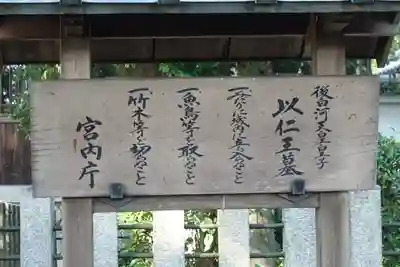 後白河天皇皇子
以仁王墓
一みだりに域内に立入らぬこと
一魚鳥等を取らぬこと
一竹木等を切らぬこと
宮内庁